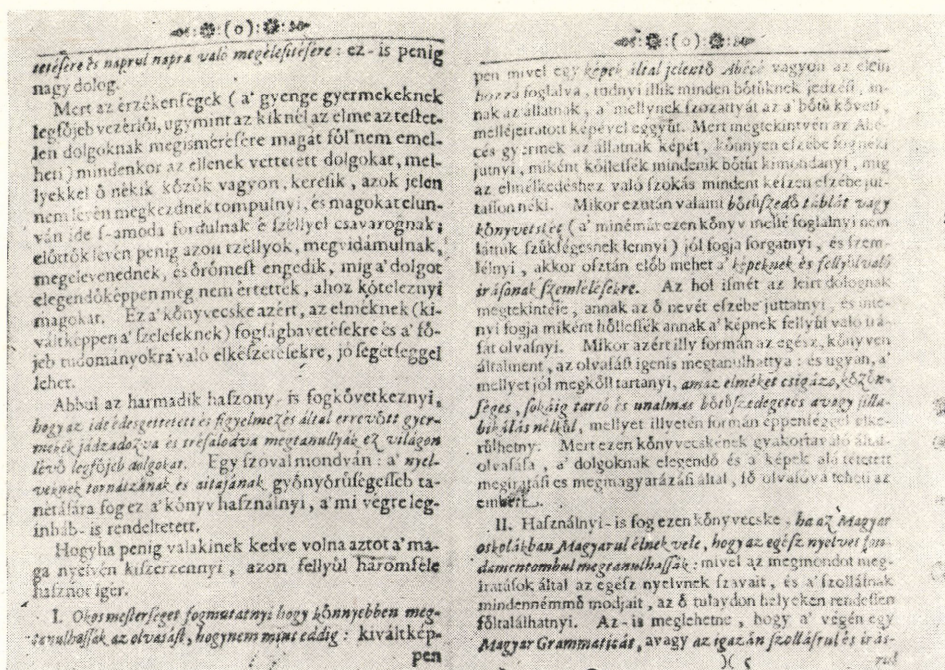 (o)
tetésére és naprul napra való megélesitésére: ez-is penig
nagy dolog.
Mert az érzékenségek (a' gyenge gyermekeknek
legfőjeb vezérlői, ugymint az kiknél az elme az testet-
len dolgoknak megismérésére magát föl nem emel-
heti) mindenkor az ellenek vettetett dolgokat, mel-
lyekkel ő nékik közök vagyon, keresik, azok jelen
nem lévén megkezdnek tompulnyi, és magokat elun-
ván ide s-amoda fordulnak é széllyel csavarognak;
előttök lévén penig azon tzéllyok, megvidámulnak,
megelevenednek, és örömest engedik, mig a' dolgot
elegendőképpen meg nem értették, ahoz köteleznyi
magokat. Ez a' könyvecske azért, az elméknek (ki-
váltképpen a' szeleseknek) fogságbavetésekre és a' fő-
jeb tudományokra való elkészetésekre, jó segétséggel
lehet.
Abbul az harmadik haszony-is fogkövetkeznyi,
hogy az idéédesgettetett és figyelmezés által errevött gyer-
mekek jádzadozva és tréfalodva megtanullyák ez világon
lévő legfőjeb dolgokat. Egy szóval mondván: a' nyel-
veknek tornátzának és aitajának gyönyörűségesseb ta-
nétására fog ez a' könyv használnyi, a' mi végre leg-
inkáb-is rendeltetett.
Hogyha penig valakinek kedve volna aztot a' ma-
ga nyelvén kiszerzennyi, azon fellyül háromféle
hasznot igér.
I. Okos mesterséget fogmutatnyi hogy könnyebben meg-
tanulhassák az olvasást, hogynem mint eddig: kiváltkép-
pen
(o)
pen mivel egy képek által jelentő Ábécé vagyon az elein
hozzá foglalva, tudnyi illik minden bötüknek jedzési, an-
nak az állatnak, a' mellynek szozattyát az a' bötü követi,
melléjeiratott képével eggyüt. Mert megtekintvén az Ábé-
cés gyermek az állatnak képét, könnyen eszébe fog néki
jutnyi, miként köllessék mindenik bötüt kimondanyi, mig
az elmélkedéshez való szokás mindent készen eszébe jut-
tasson néki. Mikor ezután valami bötüszedő táblát vagy
könyvetskét (a' minémüt ezen könyv mellé foglalnyi nem
láttuk szükségesnek lennyi) jól fogja forgatnyi, és szem-
lélnyi, akkor osztán elöb mehet a' képeknek és fellyülvaló
irásanak szemlélésekre. Az hol ismét az leirt dolognak
megtekintése, annak az ő nevét eszébe juttatnyi, és
nyi fogja miként höllessék annak a' képnek fellyül való irá-
sát olvasnyi. Mikor azért illy formán az egész, könyven
általment, az olvasást igenis megtanulhattya: és ugyan, a'
mellyet jól megköll tartanyi, amaz elméket csigázo, közön-
séges, sokáig tartó és unalmas bötüszedegetés avagy silla-
bikálás nélkül, mellyet illyetén formán éppenséggel elke-
rülhetny. Mert ezen könyvecskének gyakorta való által-
olvasása, a' dolgoknak elegendő és a képek alá tétetett
megiratási es megmagyarázási által, fő olvasóvá teheti az
embert.
II. Használnyi-is fog ezen könyvecske, ha az Magyar
oskolákban Magyarul élnek vele, hogy az egész nyelvet fun-
damentombul megtanulhassák: mivel az megmondot meg-
iratások által az egész nyelvnek szavait, és a' szollásnak
mindennémmő modjait, az ő tulaydon helyeken rendessen
föltalálhatni. Az-is meglehetne, hogy a' végén egy
Magyar Grammaticát, avagy az igazán szollásrul és irás-
rul